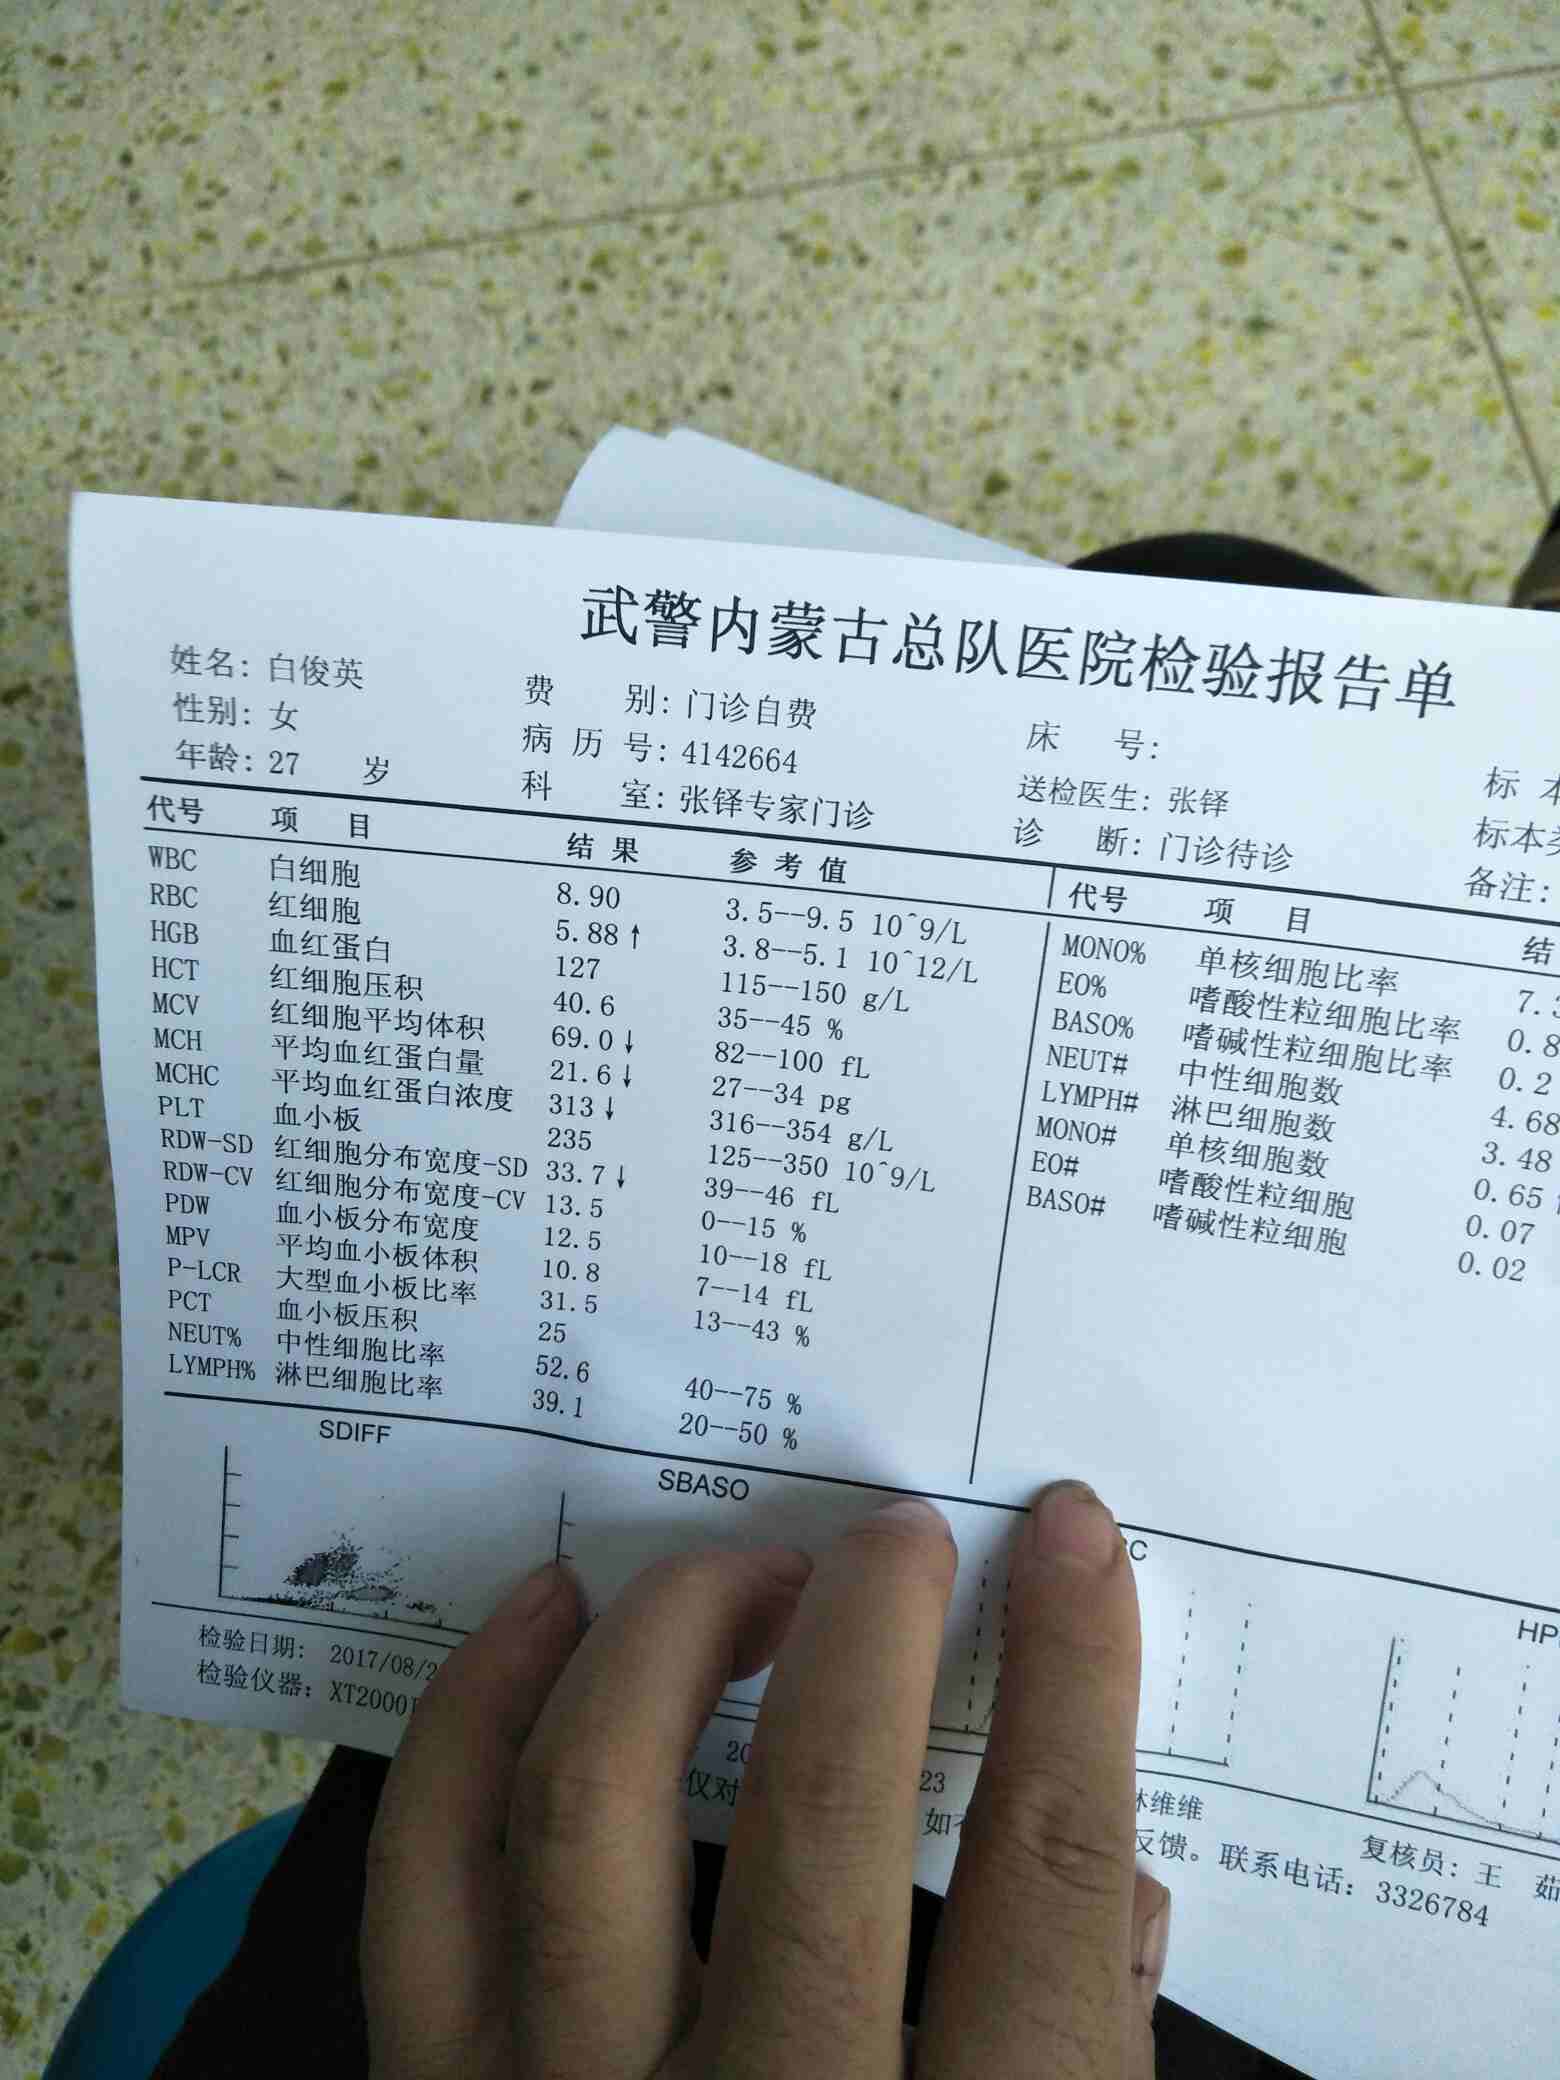 武警内蒙古总队医院检验报告单
姓名: 白俊英 费 别: 门诊自费 床 号:
性别: 女 病 历 号: 4142664 送检医生: 张铎 标 本
年龄: 27 岁 科 室: 张铎专家门诊 诊 断: 门诊待诊 标本
备注:
代号 项 目 结 果 参 考 值
WBC 白细胞 8.90 3.5--9.5 10^9/L
RBC 红细胞 5.88↑ 3.8--5.1 10^12/L
HGB 血红蛋白 127 115--150 g/L
HCT 红细胞压积 40.6 35--45 %
MCV 红细胞平均体积 69.0↓ 82--100 fL
MCH 平均血红蛋白量 21.6↓ 27--34 pg
MCHC 平均血红蛋白浓度 313↓ 316--354 g/L
PLT 血小板 235 125--350 10^9/L
RDW-SD 红细胞分布宽度-SD 33.7↓ 39--46 fL
RDW-CV 红细胞分布宽度-CV 13.5 0--15 %
PDW 血小板分布宽度 12.5 10--18 fL
MPV 平均血小板体积 10.8 7--14 fL
P-LCR 大型血小板比率 31.5 13--43 %
PCT 血小板压积 25
NEUT% 中性细胞比率 52.6 40--75 %
LYMPH% 淋巴细胞比率 39.1 20--50 %
代号 项 目 结
MONO% 单核细胞比率 7.
EO% 嗜酸性粒细胞比率 0.8
BASO% 嗜碱性粒细胞比率 0.2
NEUT# 中性细胞数 4.68
LYMPH# 淋巴细胞数 3.48
MONO# 单核细胞数 0.65
EO# 嗜酸性粒细胞 0.07
BASO# 嗜碱性粒细胞 0.02
SDIFF SBASO C HP
检验日期: 2017/08/2
检验仪器: XT2000
20 23 维维 复核员: 王 茹
仅对 如 反馈。联系电话: 3326784